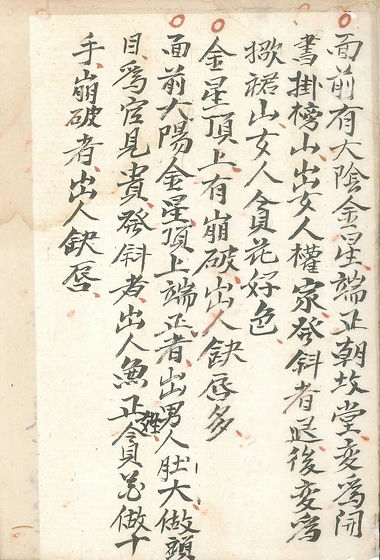 面前有太陰金星端正朝坟堂変為開
書掛榜山出女人權家發斜者退後変為
掀裙山女人貪花好色
金星頂上有崩破出人缺唇多
面前太陽金星頂上端正者出男人肚大做頭
目為官見貴發斜者出人無正貪花做十
手崩破者出人缺唇